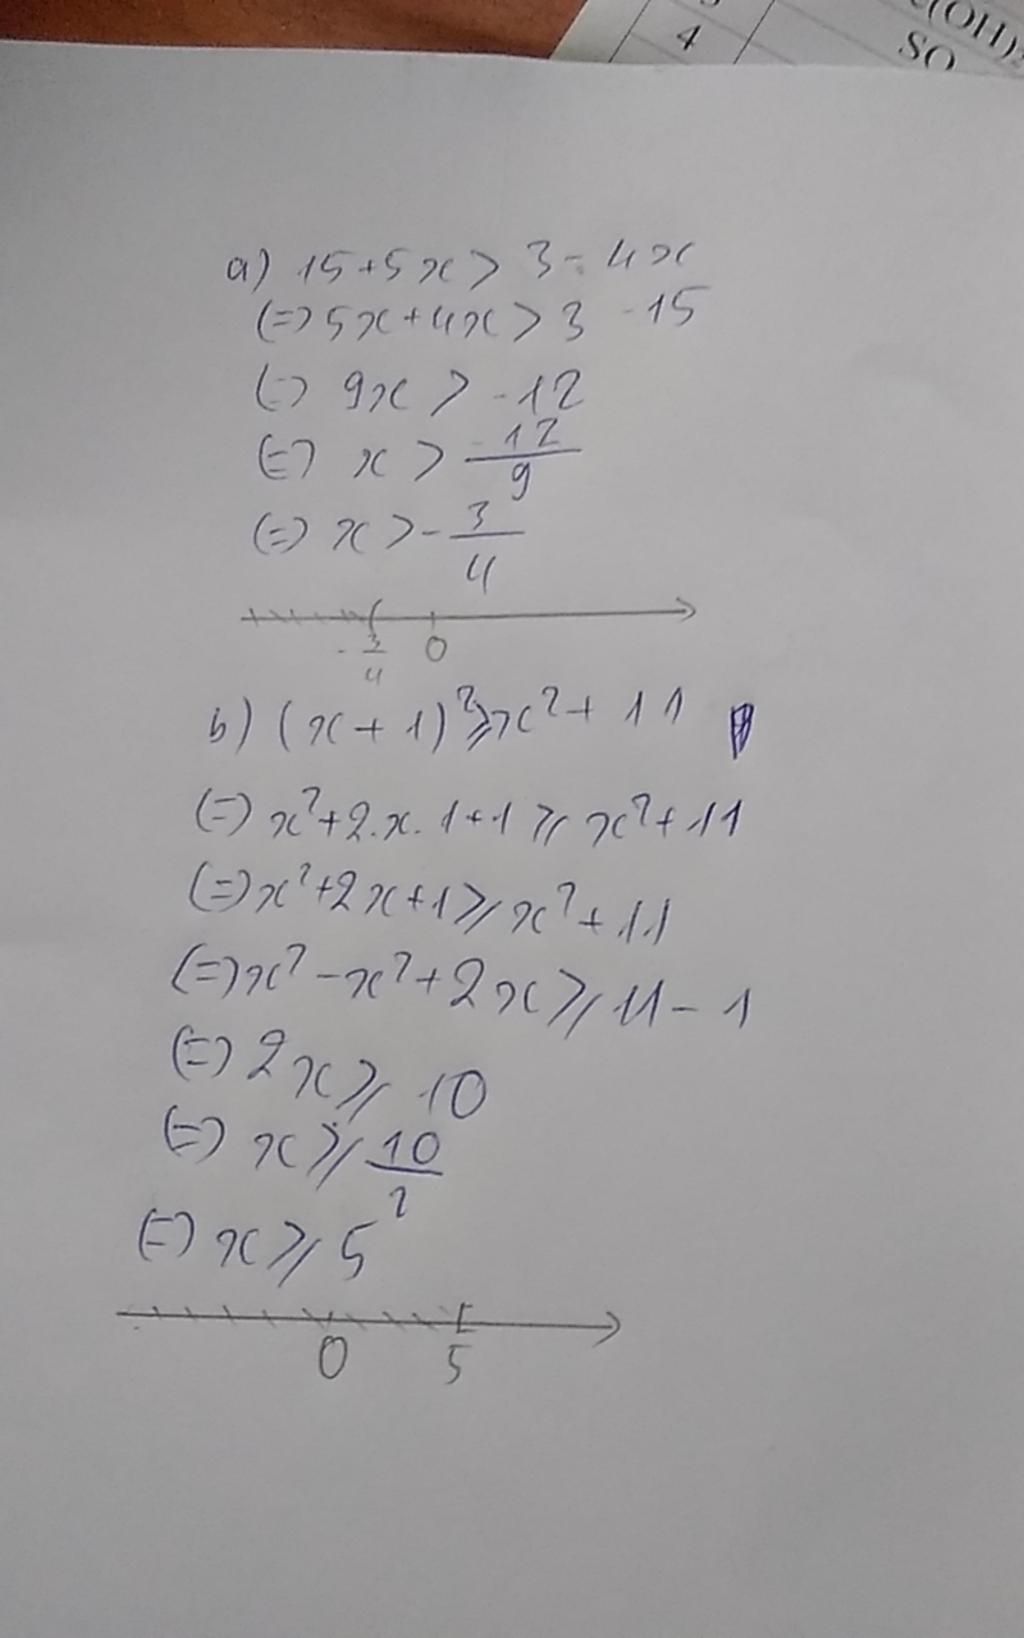 4
(OH)2
SO
a) 15+5x > 3-4x
(=) 5x+4x > 3 -15
(=) 9x > -12
(=) x > -12/9
(=) x > -3/4
-3/4 0
b) (x+1)²⩾x²+11
(=) x²+2.x.1+1⩾x²+11
(=) x²+2x+1⩾x²+11
(=) x²-x²+2x⩾11-1
(=) 2x⩾10
(=) x⩾10/2
(=) x⩾5
0 5